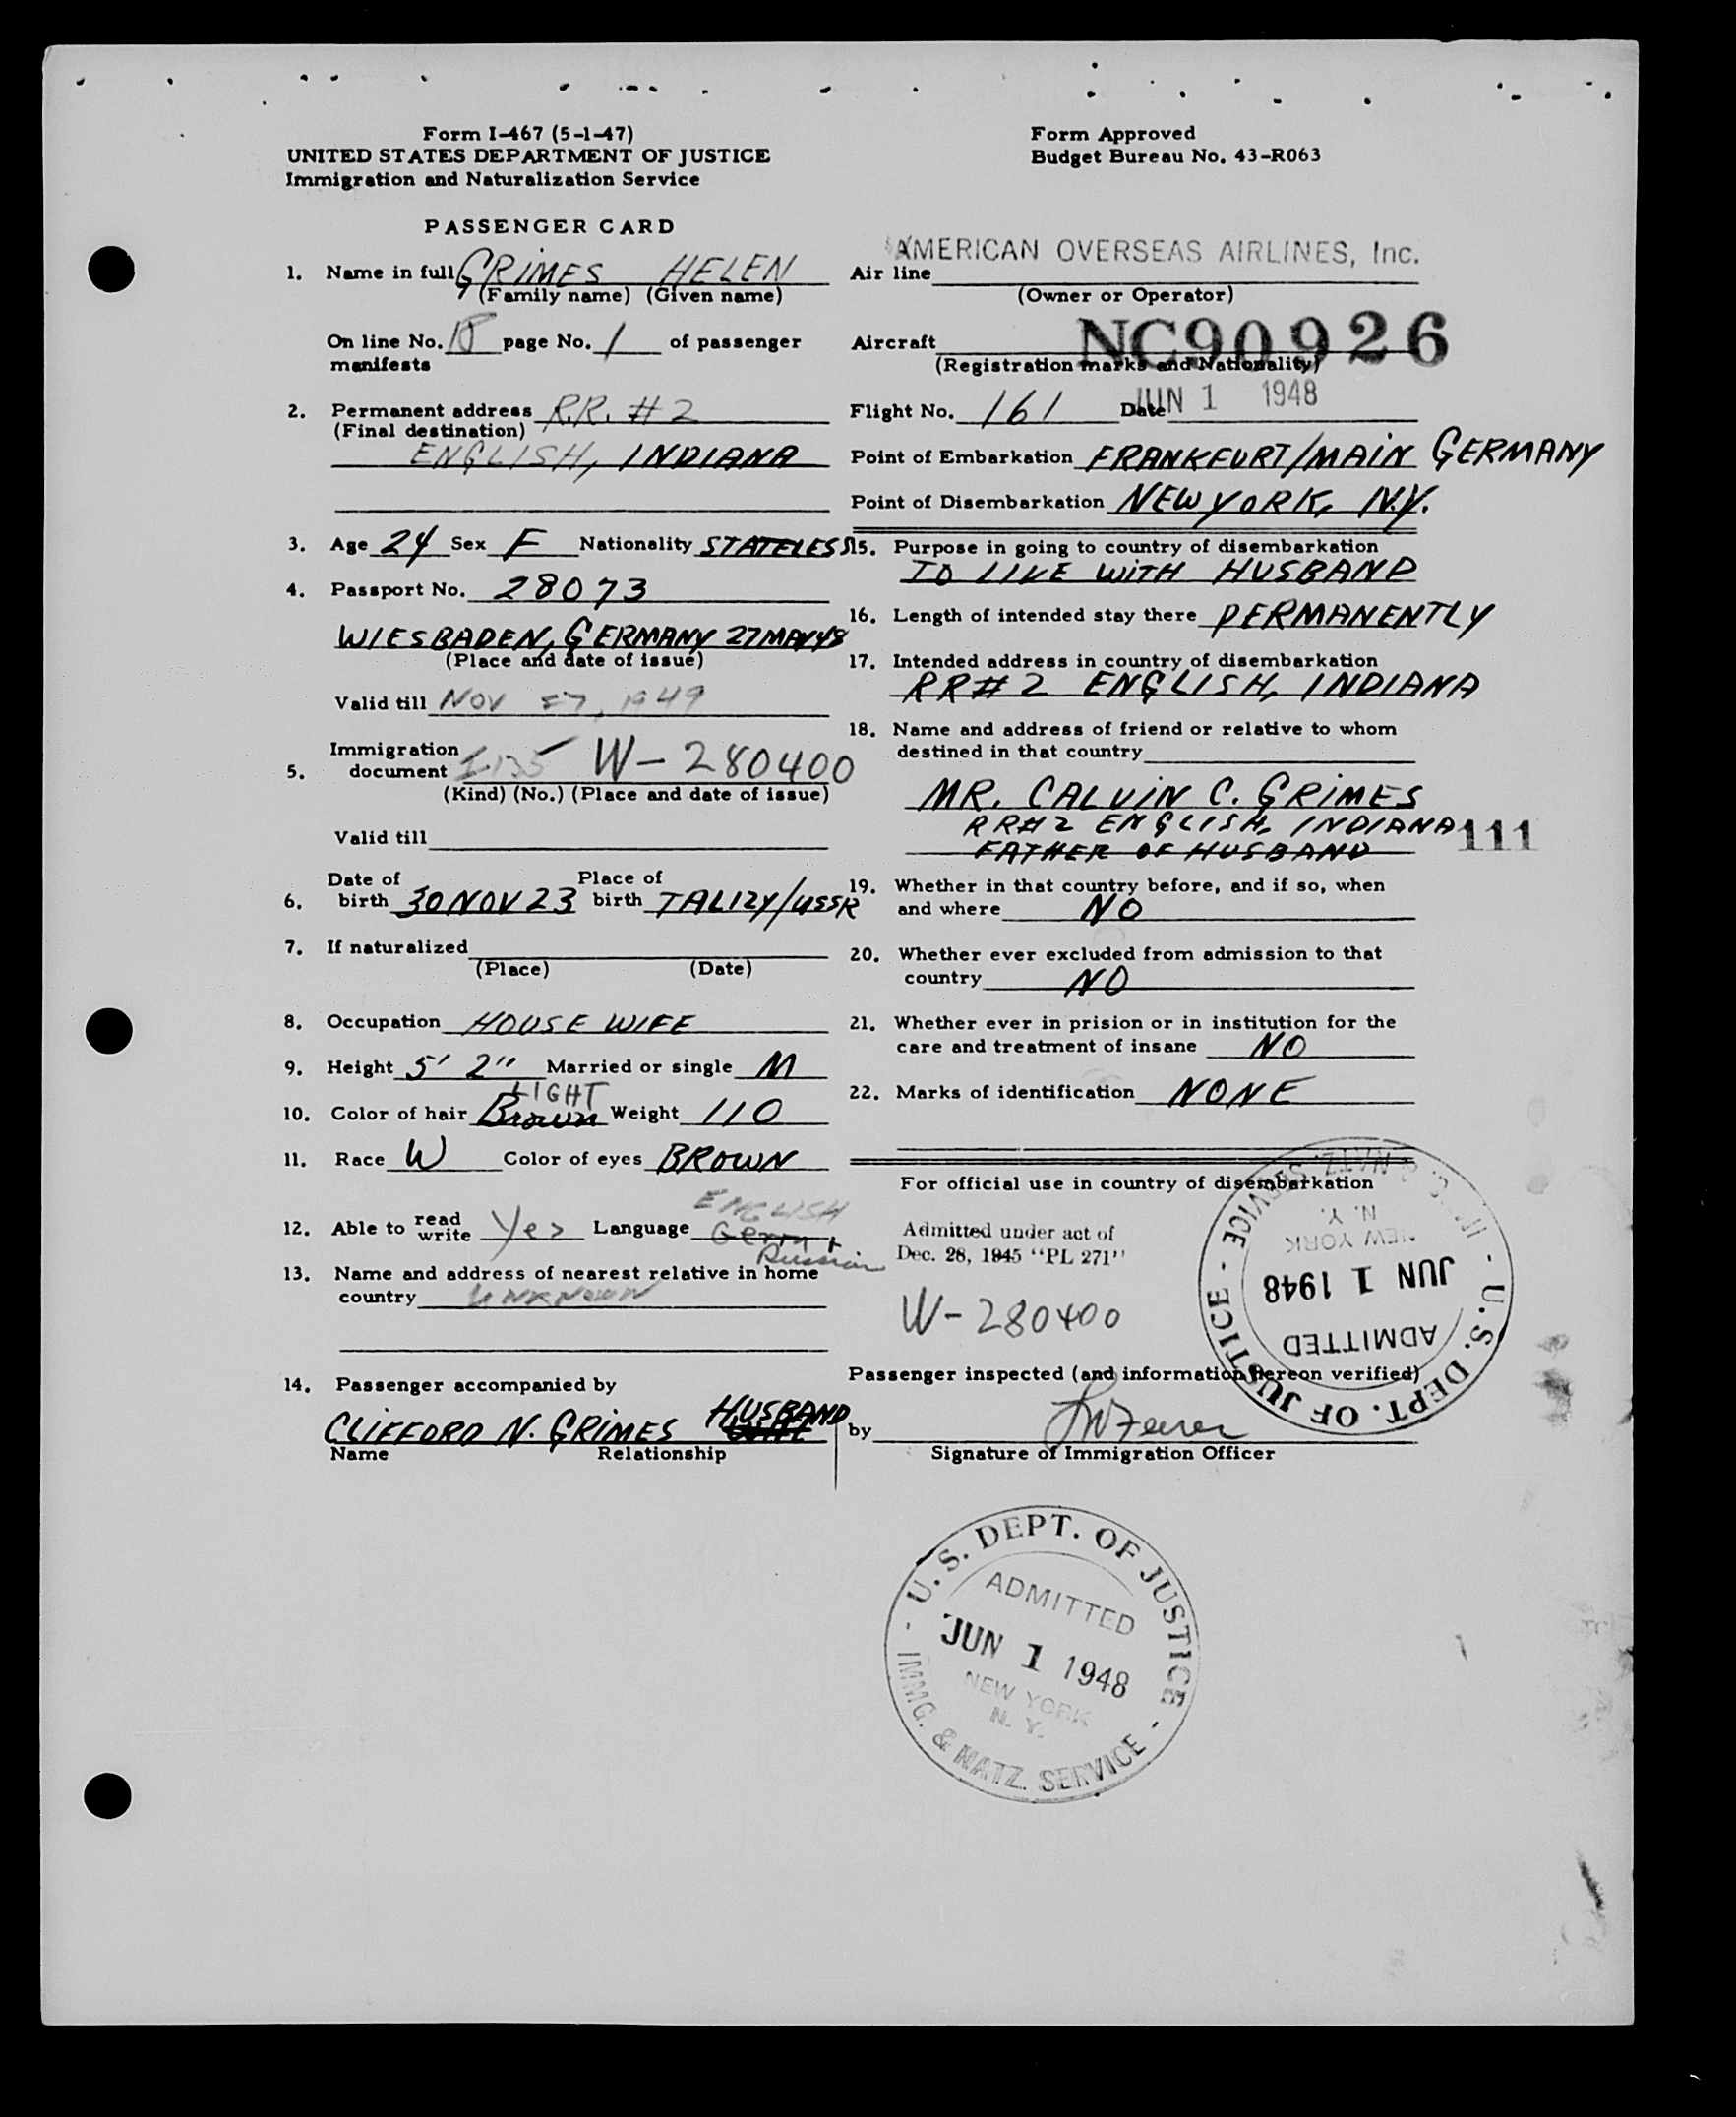 Form I-467 (5-1-47)
UNITED STATES DEPARTMENT OF JUSTICE
Immigration and Naturalization Service
Form Approved
Budget Bureau No. 43-R063
PASSENGER CARD
1. Name in full GRIMES HELEN
(Family name) (Given name)
On line No. page No. 1 of passenger
manifests
2. Permanent address R.R. #2
(Final destination)
ENGLISH, INDIANA
3. Age 24 Sex F Nationality STATELESS
4. Passport No. 28073
WIESBADEN, GERMANY 27 MAY 48
(Place and date of issue)
Valid till NOV 27, 1949
Immigration
5. document I135 W-280400
(Kind) (No.) (Place and date of issue)
Valid till
Date of Place of
6. birth 30 NOV 23 birth TALIZY/USSR
7. If naturalized
(Place) (Date)
8. Occupation HOUSE WIFE
9. Height 5' 2" Married or single M
LIGHT
10. Color of hair Brown Weight 110
11. Race W Color of eyes BROWN
ENGLISH
12. Able to read write Yes Language Germ +
Russian
13. Name and address of nearest relative in home
country UNKNOWN
14. Passenger accompanied by
CLIFFORD N. GRIMES HUSBAND
Name Relationship
AMERICAN OVERSEAS AIRLINES, Inc.
Air line
(Owner or Operator)
Aircraft NC90926
(Registration marks and Nationality)
Flight No. 161 Date JUN 1 1948
Point of Embarkation FRANKFURT/MAIN GERMANY
Point of Disembarkation NEW YORK, N.Y.
15. Purpose in going to country of disembarkation
TO LIVE WITH HUSBAND
16. Length of intended stay there PERMANENTLY
17. Intended address in country of disembarkation
RR#2 ENGLISH, INDIANA
18. Name and address of friend or relative to whom
destined in that country
MR. CALVIN C. GRIMES
RR#2 ENGLISH, INDIANA 111
FATHER OF HUSBAND
19. Whether in that country before, and if so, when
and where NO
20. Whether ever excluded from admission to that
country NO
21. Whether ever in prision or in institution for the
care and treatment of insane NO
22. Marks of identification NONE
For official use in country of disembarkation
Admitted under act of
Dec. 28, 1945 "PL 271"
W-280400
Passenger inspected (and information hereon verified)
by
Signature of Immigration Officer
U.S. DEPT. OF JUSTICE
ADMITTED
JUN 1 1948
NEW YORK
N.Y.
IMMG. & NATZ. SERVICE
U.S. DEPT. OF JUSTICE
ADMITTED
JUN 1 1948
NEW YORK
N.Y.
IMMG. & NATZ. SERVICE